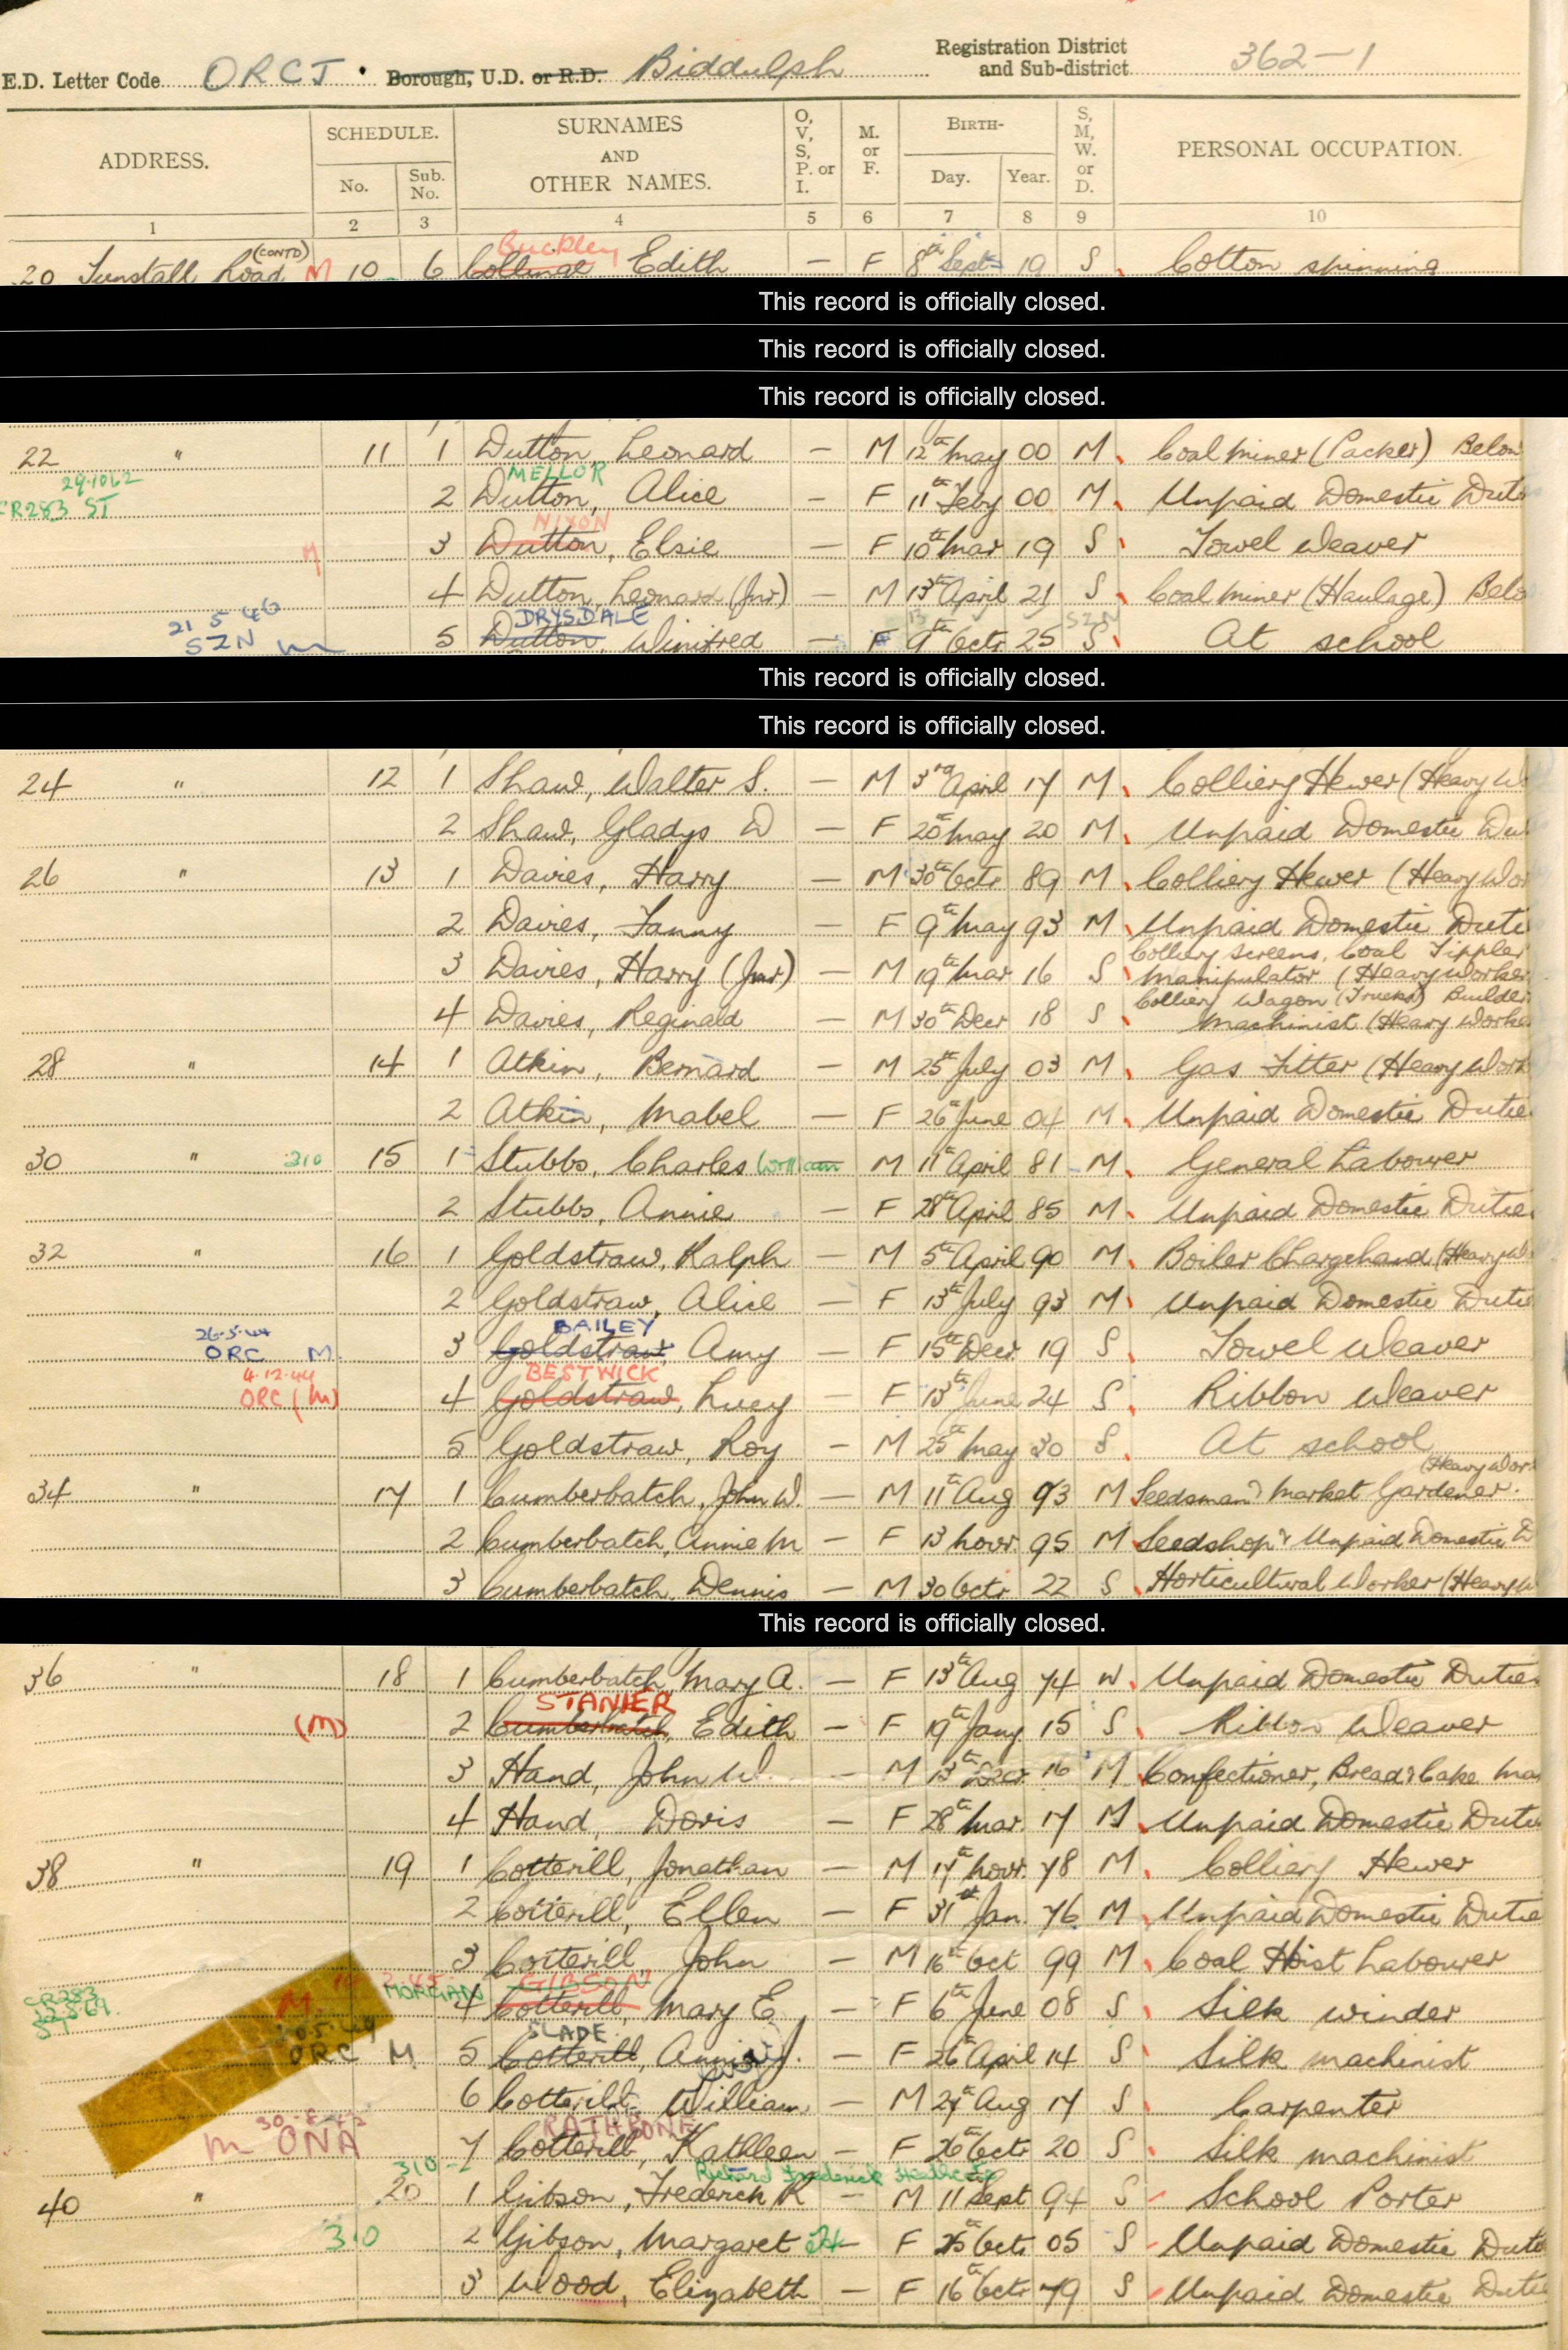 E.D. Letter Code ORCJ · Borough, U.D. or R.D. Biddulph Registration District and Sub-district 362-1
ADDRESS. SCHEDULE. No. Sub. No. SURNAMES AND OTHER NAMES. O, V, S, P. or I. M. or F. BIRTH- Day. Year. S, M, W. or D. PERSONAL OCCUPATION.
1 2 3 4 5 6 7 8 9 10
Buckley
20 Tunstall Road (CONTD) M 10 6 Collinge Edith – F 8th Sept 19 S Cotton spinning
This record is officially closed.
This record is officially closed.
This record is officially closed.
22 " 11 1 Dutton, Leonard – M 12th May 00 M Coal miner (Packer) Below
29.10.62 MELLOR
CR283 ST 2 Dutton, Alice – F 11th Feby 00 M Unpaid Domestic Dutie
NIXON
M 3 Dutton, Elsie – F 10th Mar 19 S Towel Weaver
4 Dutton, Leonard (Jnr) – M 13th April 21 S Coal miner (Haulage) Belo
21 5 46 DRYSDALE
SZN m 5 Dutton, Winifred – F 9th Octr 25 S At school
This record is officially closed.
This record is officially closed.
24 " 12 1 Shaw, Walter S. – M 3rd April 17 M Colliery Hewer (Heavy W
2 Shaw, Gladys W – F 20th May 20 M Unpaid Domestic Du
26 " 13 1 Davies, Harry – M 30th Octr 89 M Colliery Hewer (Heavy Wor
2 Davies, Fanny – F 9th May 93 M Unpaid Domestic Dutie
Colliery Screens, Coal Tippler
3 Davies, Harry (Jnr) – M 19th Mar 16 S Manipulator (Heavy Worker
Colliery Wagon (Trucks) Builder
4 Davies, Reginald – M 30th Decr 18 S Machinist (Heavy Worke
28 " 14 1 Atkin, Bernard – M 25th July 03 M Gas Fitter (Heavy Work
2 Atkin, Mabel – F 26th June 04 M Unpaid Domestic Dutie
30 " 310 15 1 Stubbs, Charles William M 11th April 81 M General Labourer
2 Stubbs, Annie – F 28th April 85 M Unpaid Domestic Dutie
32 " 16 1 Goldstraw, Ralph – M 5th April 90 M Boiler Chargehand (Heavy W
2 Goldstraw, Alice – F 13th July 93 M Unpaid Domestic Dutie
26.5.44 BAILEY
ORC M. 3 Goldstraw, Amy – F 15th Decr 19 S Towel Weaver
4.12.44 BESTWICK
ORC (M) 4 Goldstraw, Lucy – F 13th June 24 S Ribbon Weaver
5 Goldstraw, Roy – M 25th May 30 S At school
(Heavy Wor
34 " 17 1 Cumberbatch, John W. – M 11th Aug 93 M Seedsman & Market Gardener.
2 Cumberbatch, Annie M – F 13 Novr. 95 M Seedshop & Unpaid Domestic D
3 Cumberbatch, Dennis – M 30 Octr 22 S Horticultural Worker (Heavy W
This record is officially closed.
36 " 18 1 Cumberbatch, Mary A. – F 13th Aug 74 W. Unpaid Domestic Duties
STANIER
(M) 2 Cumberbatch, Edith – F 19th Jany 15 S Ribbon Weaver
3 Hand, John W. – M 13th Decr 16 M Confectioner, Bread & Cake Ma
4 Hand, Doris – F 28th Mar. 17 M Unpaid Domestic Dutie
38 " 19 1 Cotterill, Jonathan – M 17th Novr. 78 M Colliery Hewer
2 Cotterill, Ellen – F 31st Jan. 76 M Unpaid Domestic Dutie
3 Cotterill, John – M 16th Oct 99 M Coal Hoist Labourer
MORGAN GIBSON
CR283 ST M. 4 Cotterill, Mary E. – F 6th June 08 S Silk winder
SLADE
ORC M 5 Cotterill, Annie J. – F 26th April 14 S Silk machinist
6 Cotterill, William – M 27th Aug 17 S Carpenter
RATHBONE
m ONA 7 Cotterill, Kathleen – F 26th Octr 20 S Silk machinist
310 Richard Frederick Heathcote
40 " 20 1 Gibson, Frederick R – M 11th Sept 94 S School Porter
310 2 Gibson, Margaret H – F 25th Octr 05 S Unpaid Domestic Dutie
3 Wood, Elizabeth – F 16th Octr 79 S Unpaid Domestic Dutie